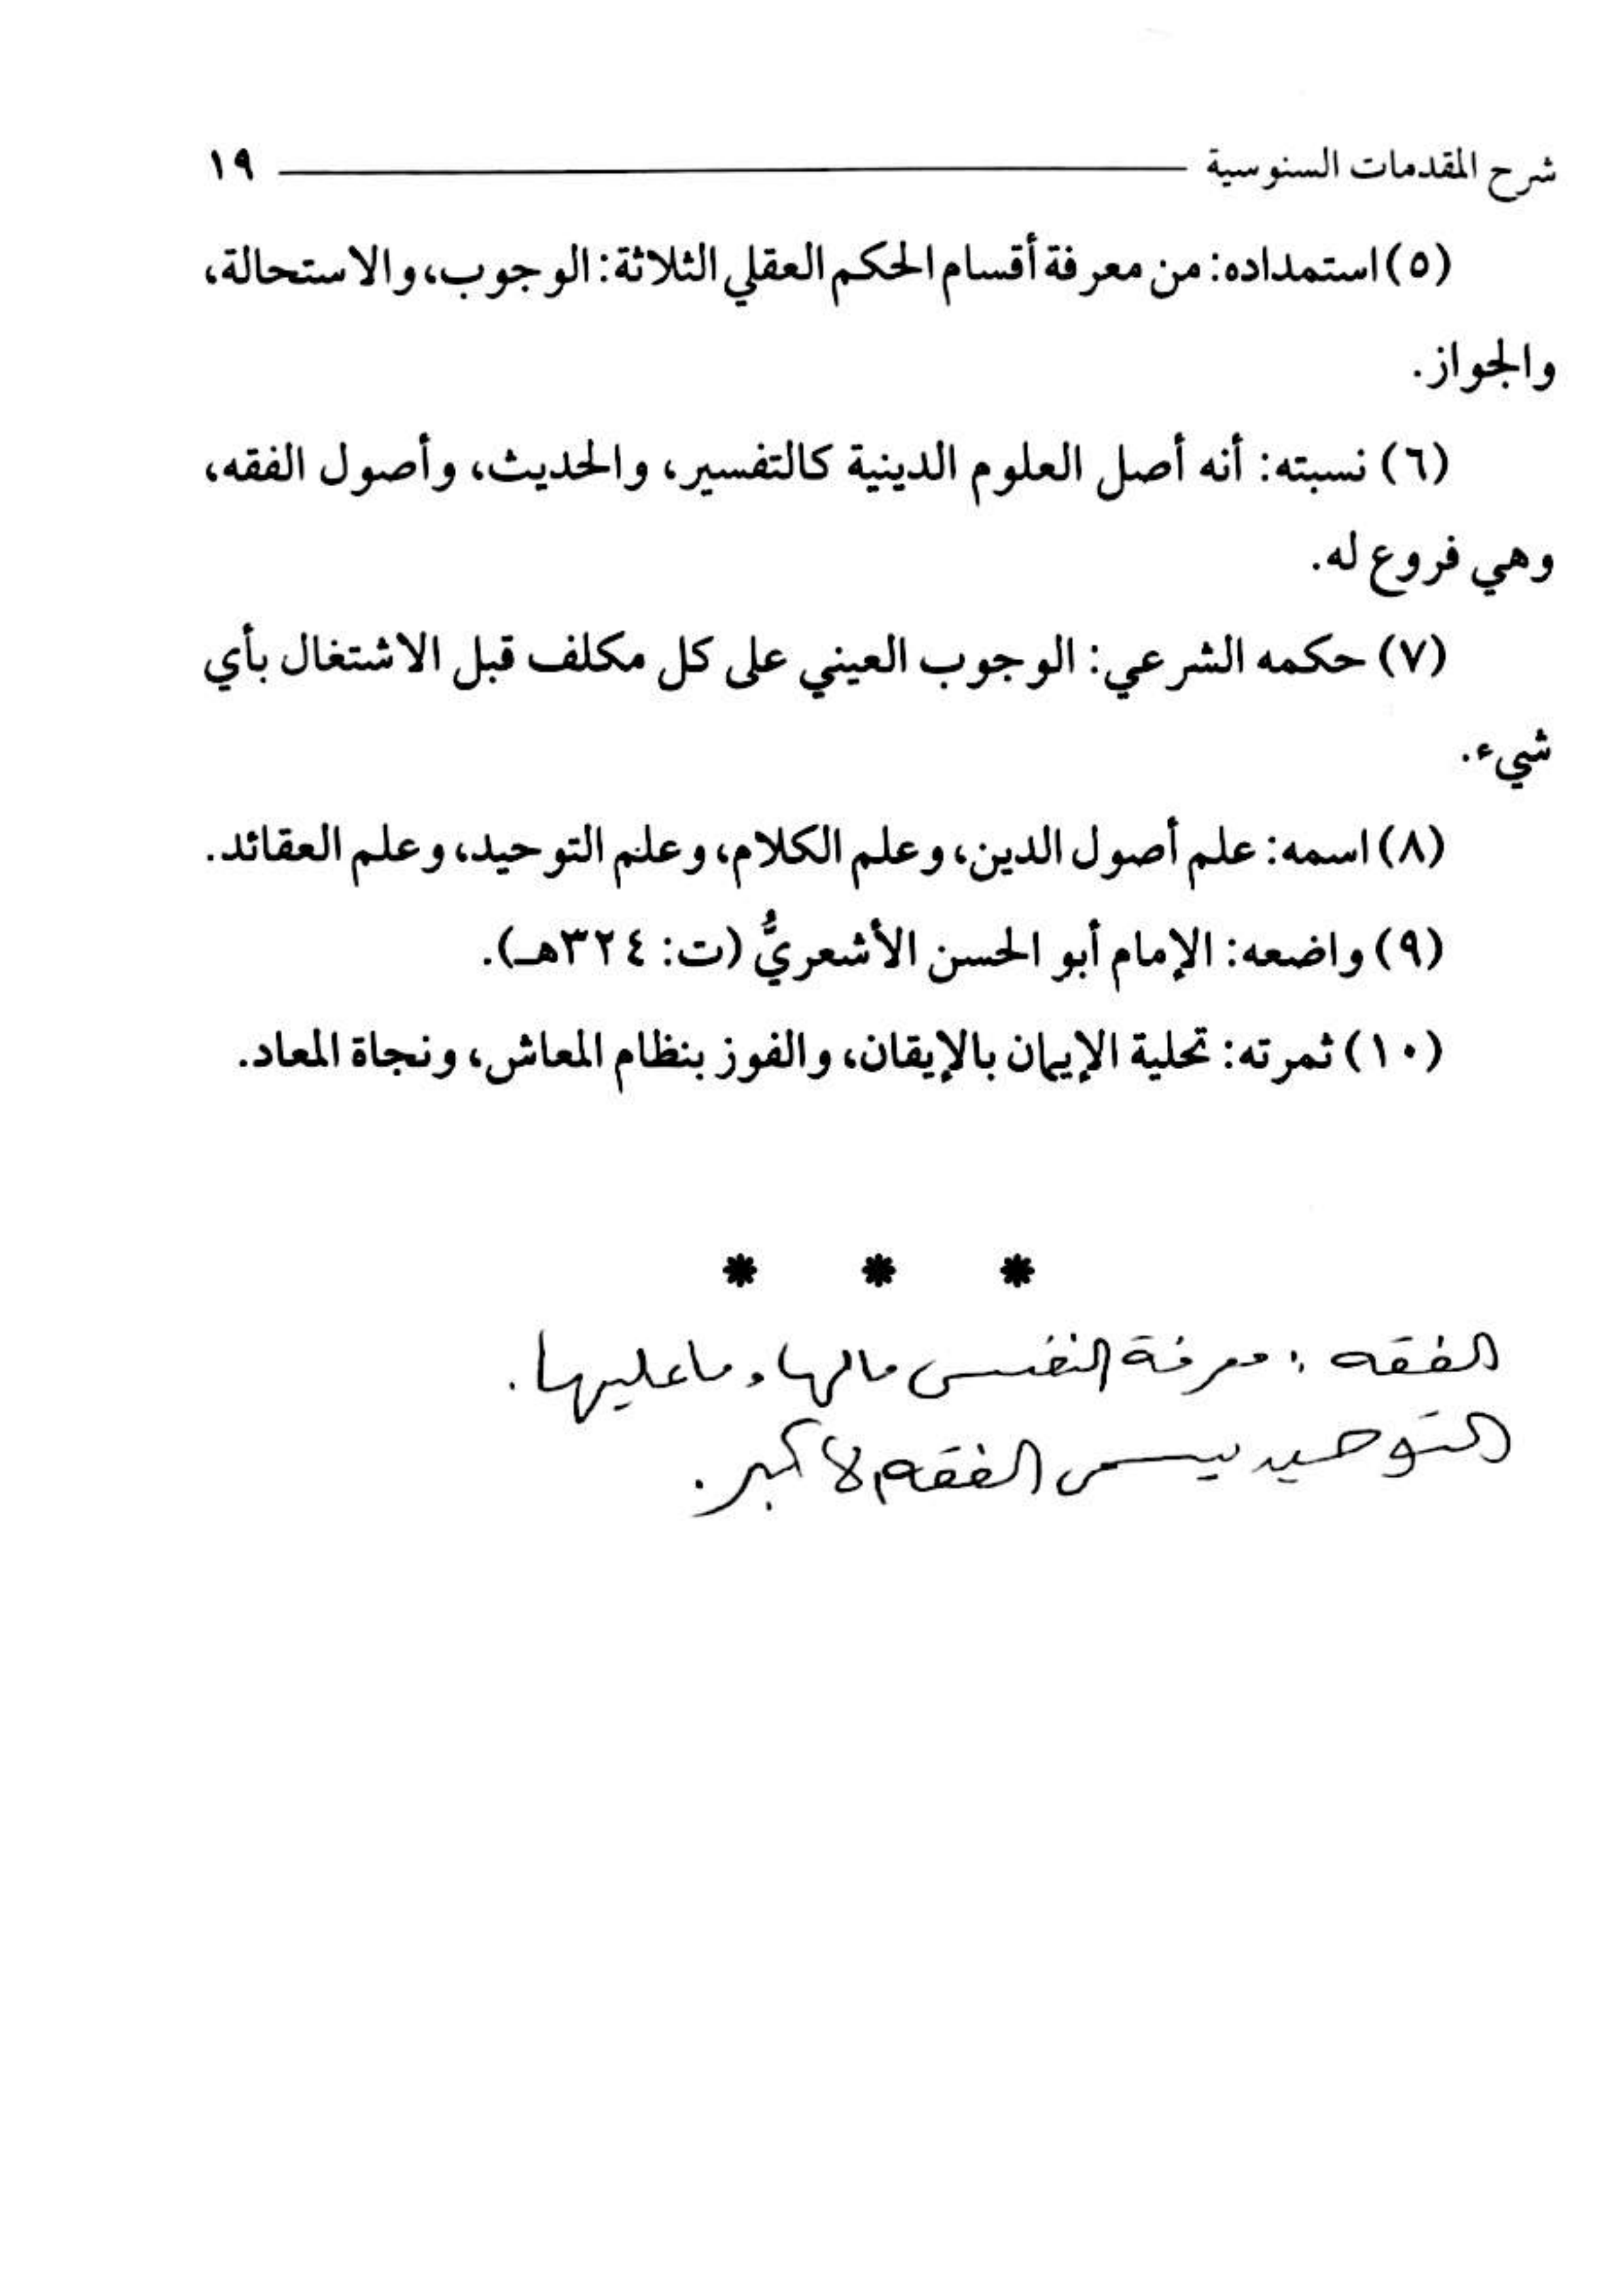 شرح المقدمات السنوسية ١٩
(٥) استمداده: من معرفة أقسام الحكم العقلي الثلاثة: الوجوب، والاستحالة،
والجواز.
(٦) نسبته: أنه أصل العلوم الدينية كالتفسير، والحديث، وأصول الفقه،
وهي فروع له.
(٧) حكمه الشرعي: الوجوب العيني على كل مكلف قبل الاشتغال بأي
شيء.
(٨) اسمه: علم أصول الدين، وعلم الكلام، وعلم التوحيد، وعلم العقائد.
(٩) واضعه: الإمام أبو الحسن الأشعريُّ (ت: ٣٢٤هـ).
(١٠) ثمرته: تحلية الإيمان بالإيقان، والفوز بنظام المعاش، ونجاة المعاد.
* * *
الفقه : معرفة النفس مالها وما عليها.
التوحيد يسمى الفقه الأكبر.